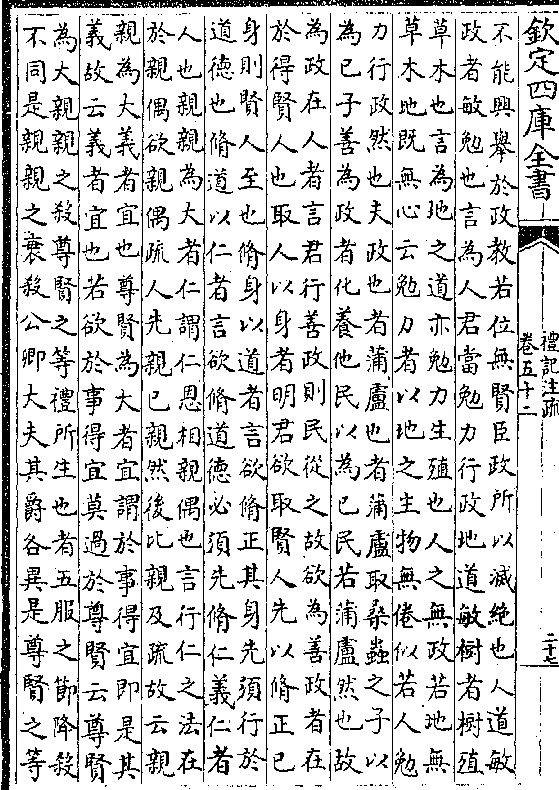 欽定四庫全書
禮記注疏
卷五十二
二十七
不能興舉於政教若位無賢臣政所以滅絶也人道敏
政者敏勉也言為人君當勉力行政地道敏樹者樹殖
草木也言為地之道亦勉力生殖也人之無政若地無
草木地既無心云勉力者以地之生物無倦似若人勉
力行政然也夫政也者蒲盧也者蒲盧取桑蟲之子以
為已子善為政者化養他民以為已民若蒲盧然也故
為政在人者言君行善政則民從之故欲為善政者在
於得賢人也取人以身者明君欲取賢人先以脩正已
身則賢人至也脩身以道者言欲脩正其身先須行於
道德也脩道以仁者言欲脩道德必須先脩仁義仁者
人也親親為大者仁謂仁恩相親偶也言行仁之法在
於親偶欲親偶疏人先親已親然後比親及疏故云親
親為大義者宜也尊賢為大者宜謂於事得宜即是其
義故云義者宜也若欲於事得宜莫過於尊賢云尊賢
為大親親之殺尊賢之等禮所生也者五服之節降殺
不同是親親之衰殺公卿大夫其爵各異是尊賢之等